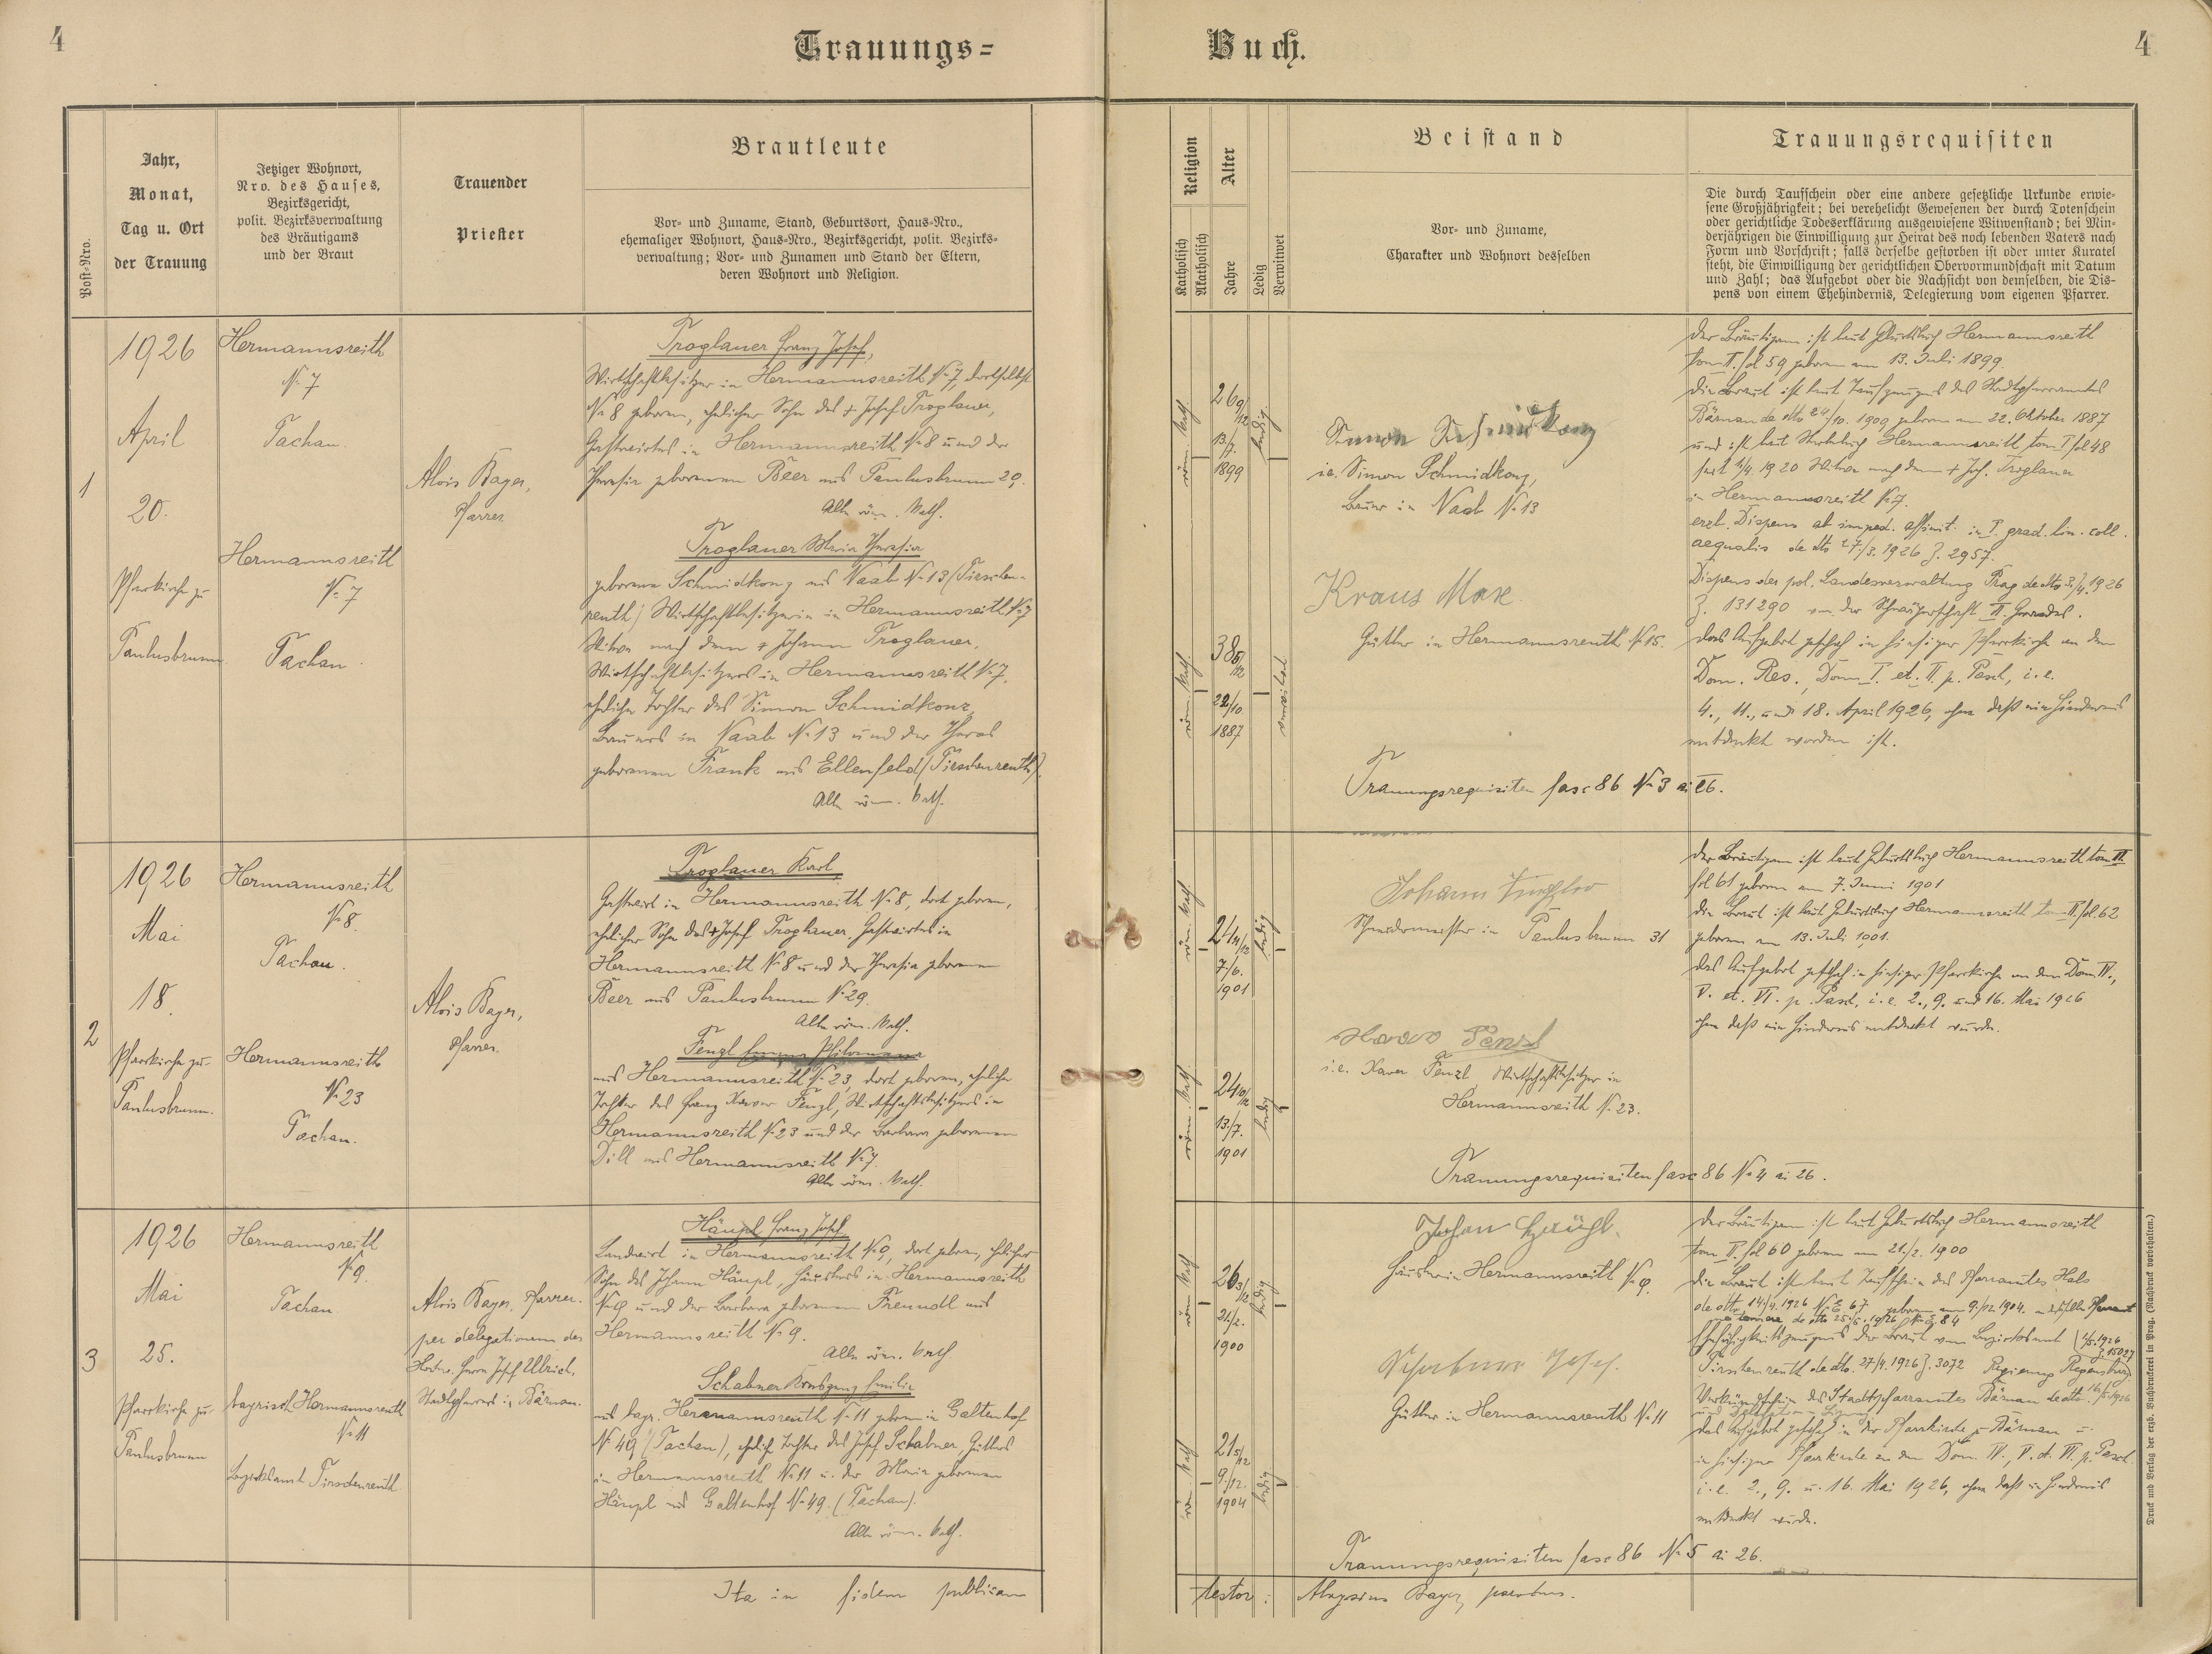 4
Trauungs=
Buch.
4
Post=Nro.
Jahr,
Monat,
Tag u. Ort
der Trauung
Jetziger Wohnort,
Nro. des Hauses,
Bezirksgericht,
polit. Bezirksverwaltung
des Bräutigams
und der Braut
Trauender
Priester
Brautleute
Vor= und Zuname, Stand, Geburtsort, Haus=Nro.,
ehemaliger Wohnort, Haus=Nro., Bezirksgericht, polit. Bezirks=
verwaltung; Vor= und Zunamen und Stand der Eltern,
deren Wohnort und Religion.
Religion
Katholisch
Akatholisch
Alter
Jahre
Ledig
Verwitwet
Beistand
Vor= und Zuname,
Charakter und Wohnort desselben
Trauungsrequisiten
Die durch Taufschein oder eine andere gesetzliche Urkunde erwie=
sene Großjährigkeit; bei verehelicht Gewesenen der durch Totenschein
oder gerichtliche Todeserklärung ausgewiesene Witwenstand; bei Min=
derjährigen die Einwilligung zur Heirat des noch lebenden Vaters nach
Form und Vorschrift; falls derselbe gestorben ist oder unter Kuratel
steht, die Einwilligung der gerichtlichen Obervormundschaft mit Datum
und Zahl; das Aufgebot oder die Nachsicht von demselben, die Dis=
pens von einem Ehehindernis, Delegierung vom eigenen Pfarrer.
1
1926
April
20.
Pfarrkirche zu
Paulusbrunn
Hermannsreith
No 7
Tachau.
Hermannsreith
No 7
Tachau
Alois Bayer,
Pfarrer
Troglauer Franz Josef,
Wirtschaftsbesitzer in Hermannsreith No 7, dortselbst
No 8 geboren, ehelicher Sohn des + Josef Troglauer,
Gastwirtes in Hermannsreith No 8 und der
Theresia geborenen Beer aus Paulusbrunn 29.
Alle röm. kath.
Troglauer Maria Theresia
geborene Schmidkonz aus Naab No 13 (Tirschen-
reuth) Wirtschaftsbesitzerin in Hermannsreith No 7
Witwe nach dem + Johann Troglauer,
Wirtschaftsbesitzers in Hermannsreith No 7,
eheliche Tochter des Simon Schmidkonz,
Bauers in Naab No 13 und der Theres
geborenen Frank aus Ellenfeld (Tirschenreuth).
Alle röm. kath.
röm. kath.
26 9/12
13/7.
1899
ledig
röm. kath.
38 5/12
22/10
1887
verwitwet
Simon Schmidkonz
i.e. Simon Schmidkonz,
Bauer in Naab No 13
Kraus Max.
Gütler in Hermannsreuth No 15.
Trauungsrequisiten fasc 86 No 3 ai 26.
Der Bräutigam ist laut Geburtsbuch Hermannsreith
tom II. fol 59 geboren am 13. Juli 1899.
Die Braut ist laut Taufzeugnis des Stadtpfarramtes
Bärnau de dto 24./10. 1909 geboren am 22. Oktober 1887
und ist laut Sterbebuch Hermannsreith tom I fol 48
seit /4. 1920 Witwe nach dem + Joh. Troglauer
in Hermannsreith No 7.
erzb. Dispens ab imped. affinit. in I. grad. lin. coll.
aequalis de dto 27./3. 1926 Z. 2957.
Dispens der pol. Landesverwaltung Prag de dto 3./4. 1926
Z. 131290 von der Schwägerschaft II. Grades.
Das Aufgebot geschah in hiesiger Pfarrkirche an den
Dom. Res., Dom I. et. II. p. Pasch, i.e.
4., 11., und 18. April 1926, ohne daß ein Hindernis
entdeckt worden ist.
2
1926
Mai
18.
Pfarrkirche zu
Paulusbrunn.
Hermannsreith
No 8.
Tachau.
Hermannsreith
No 23
Tachau.
Alois Bayer,
Pfarrer.
Troglauer Karl,
Gastwirt in Hermannsreith No 8, dort geboren,
ehelicher Sohn des + Josef Troglauer, Gastwirtes in
Hermannsreith No 8 und der Theresia geborenen
Beer aus Paulusbrunn No 29.
Alle röm. kath.
Fenzl Emma Philomena
aus Hermannsreith No 23, dort geboren, eheliche
Tochter des Franz Xaver Fenzl, Wirtschaftsbesitzers in
Hermannsreith No 23 und der Barbara geborenen
Dill aus Hermannsreith No 7.
Alle röm. kath.
röm. kath.
24 11/12
7./6.
1901
ledig
röm. kath.
24 10/12
13./7.
1901
ledig
Johann
Schneidermeister in Paulusbrunn 31
Xaver Fenzl
i.e. Xaver Fenzl, Wirtschaftsbesitzer in
Hermannsreith No 23.
Trauungsrequisiten fasc 86 No 4 ai 26.
Der Bräutigam ist laut Geburtsbuch Hermannsreith tom II
fol 61 geboren am 7. Juni 1901
Die Braut ist laut Geburtsbuch Hermannsreith tom II. fol. 62
geboren am 13. Juli 1901.
Das Aufgebot geschah in hiesiger Pfarrkirche an den Dom IV.,
V. et. VI. p. Pasch, i.e. 2., 9. und 16. Mai 1926
ohne daß ein Hindernis entdeckt wurde.
3
1926
Mai
25.
Pfarrkirche zu
Paulusbrunn
Hermannsreith
No 9.
Tachau
bayrisch Hermannsreuth
No 11
Bezirksamt Tirschenreuth
Alois Bayer, Pfarrer.
per delegationem des
Hochw. Herrn Josef Ullrich,
Stadtpfarrers in Bärnau.
Häupl Franz Josef
Landwirt in Hermannsreith No 9, dort geboren, ehelicher
Sohn des Johann Häupl, Häuslers in Hermannsreith
No 9 und der Barbara geborenen Freundl aus
Hermannsreith No 9.
Alle röm. kath
Schabner Kunigunda Emilie
aus bayr. Hermannsreuth No 11 geboren in Galtenhof
No 49 (Tachau), eheliche Tochter des Josef Schabner, Gütlers
in Hermannsreuth No 11 u. der Maria geborenen
Häupl aus Galtenhof No 49. (Tachau).
Alle röm. kath.
röm. kath
26 3/12
21/2.
1900
ledig
röm. kath
21 5/12
9./12.
1904
ledig
Johan Häupl.
Häusler in Hermannsreith No 9.
Schabner Josef.
Gütler in Hermannsreuth No 11
Trauungsrequisiten fasc 86 No 5 ai 26.
Der Bräutigam ist laut Geburtsbuch Hermannsreith
tom II. fol 60 geboren am 21./2. 1900
Die Braut ist laut Taufschein des Pfarramtes Hals
de dto 14/4. 1926 No 67 geboren am 9./12. 1904.
Ehefähigkeitszeugnis der Braut vom Bezirksamt
Tirschenreuth de dto. 27/4. 1926 Z. 3072 Regierung Regensburg
Verkündschein des Stadtpfarramtes Bärnau de dto.
Das Aufgebot geschah in der Pfarrkirche zu Bärnau u.
in hiesiger Pfarrkirche an den Dom IV., V. et. VI p. Pasch.
i.e. 2., 9. u. 16. Mai 1926, ohne daß ein Hindernis
entdeckt wurde.
Ita in fidem publicam
testor: Aloysius Bayer, parochus.
Druck und Verlag der erzb. Buchdruckerei in Prag. (Nachdruck vorbehalten.)